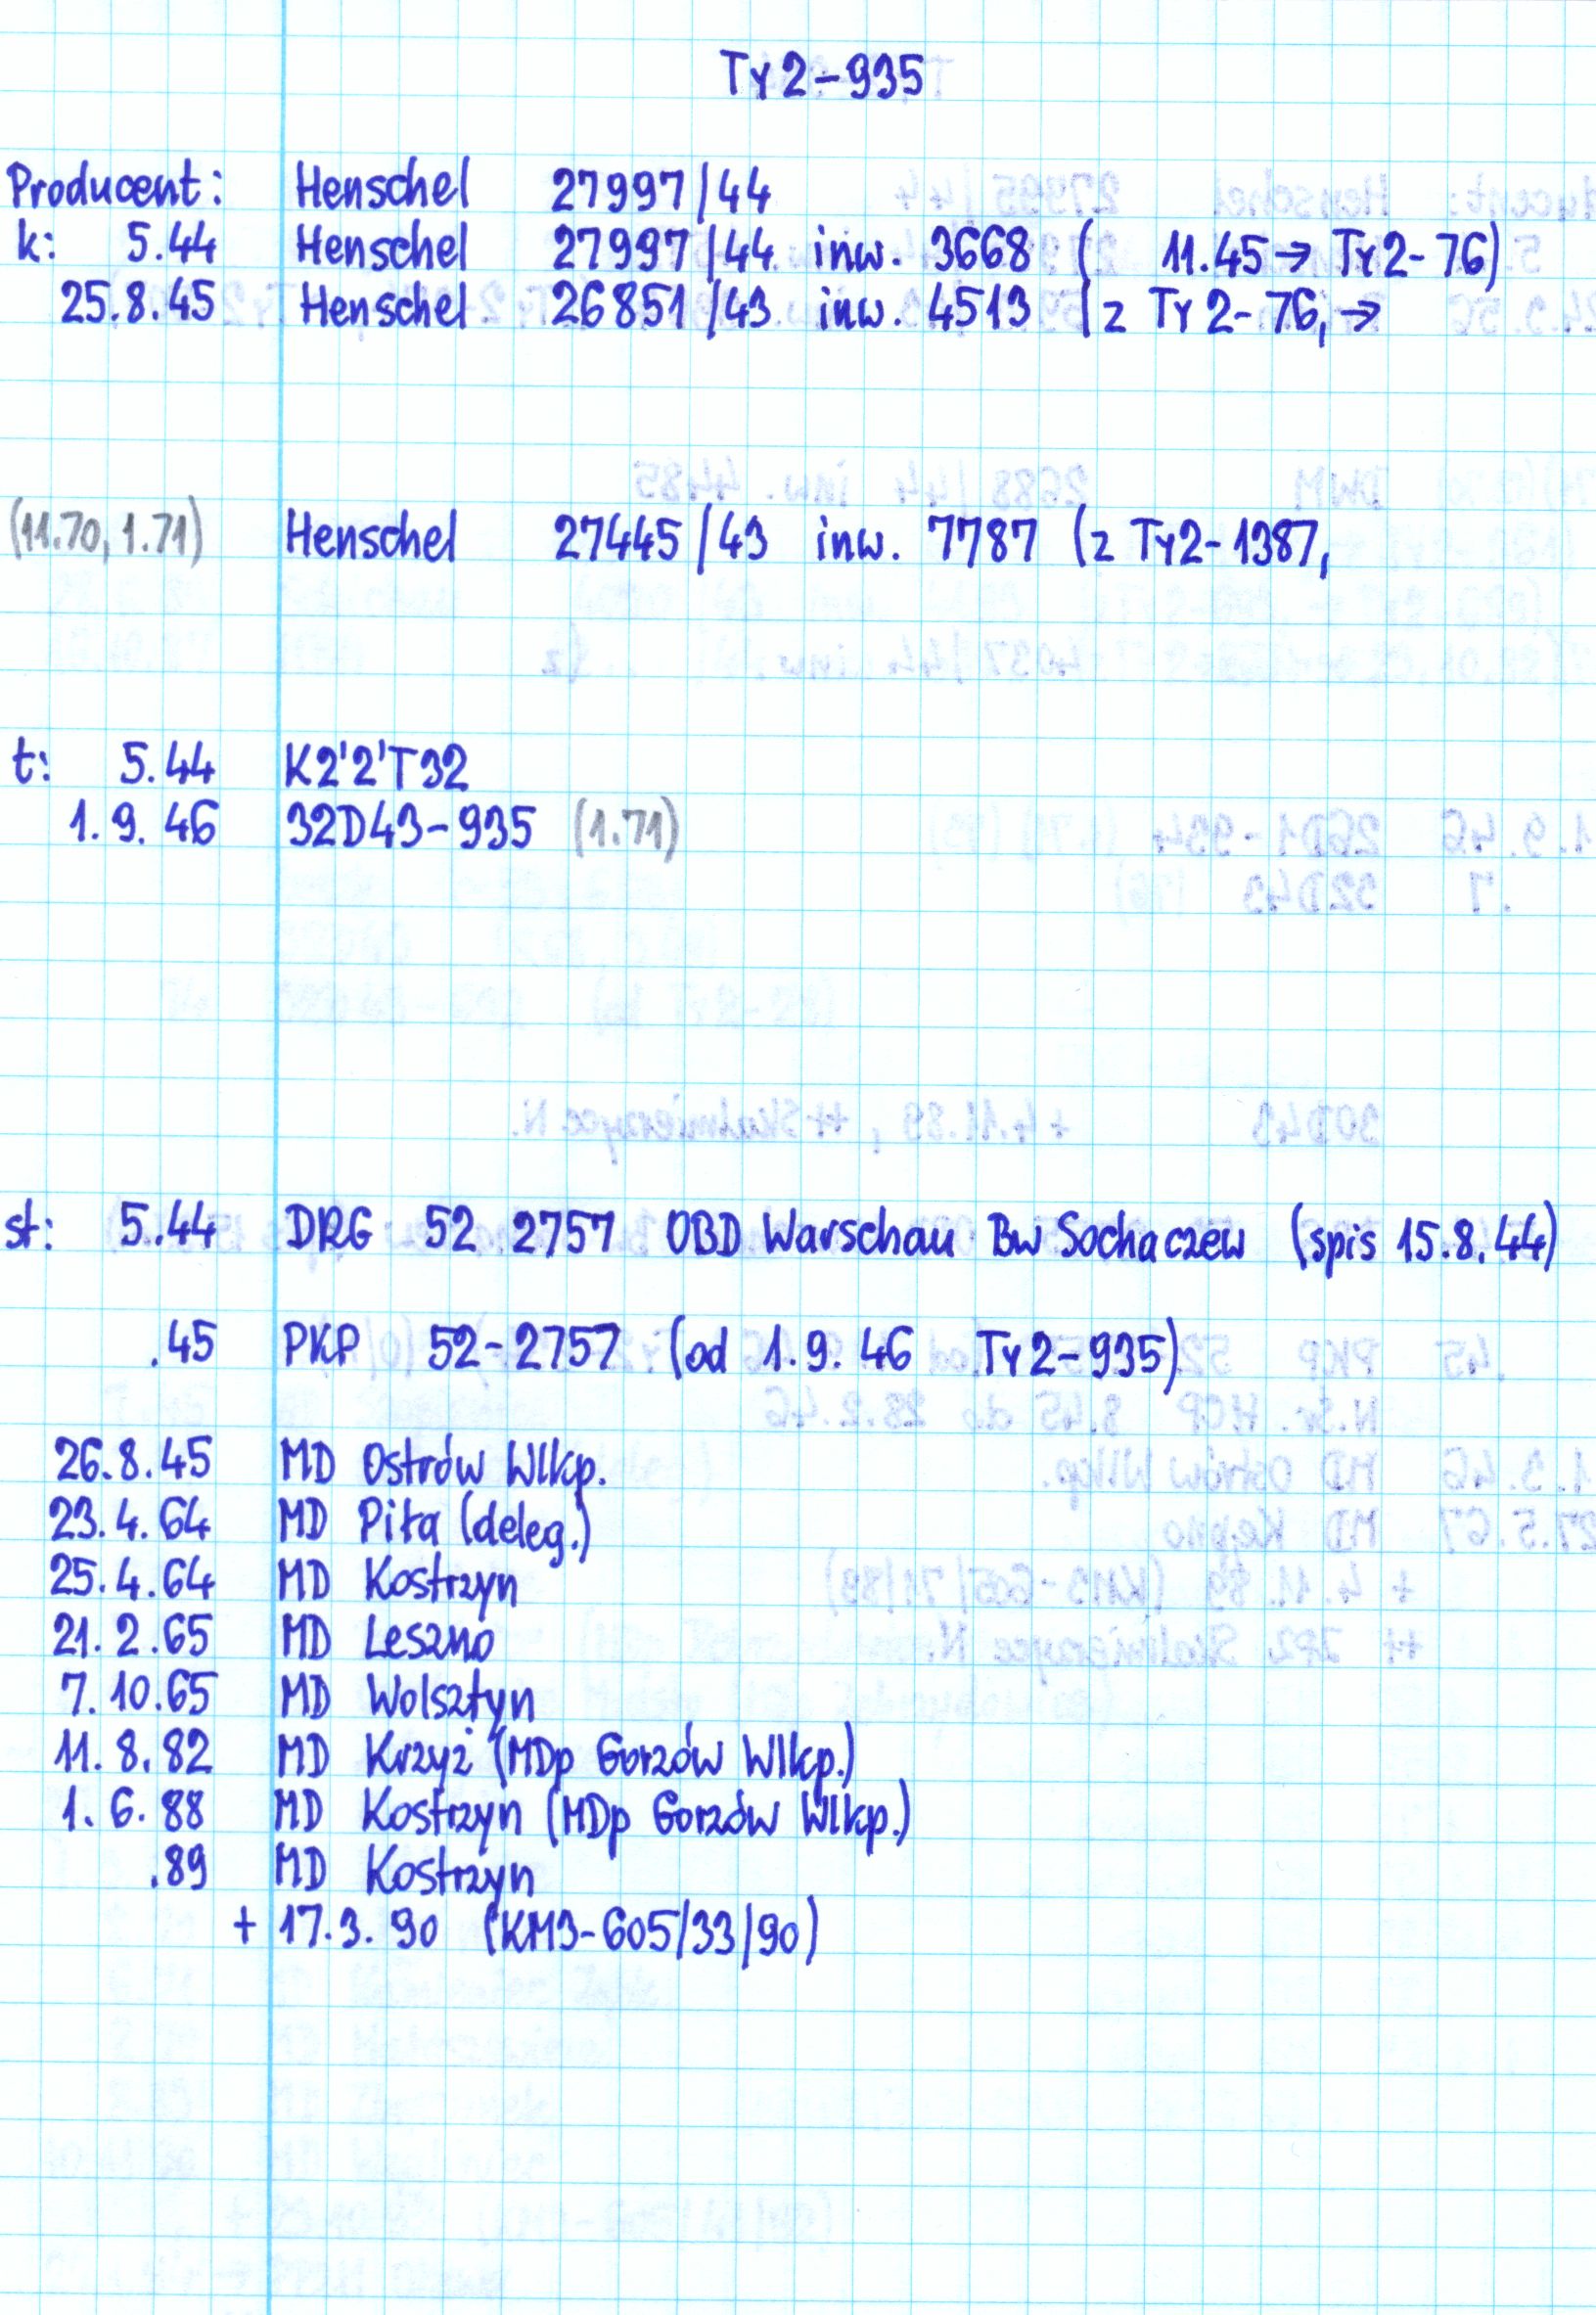 Ty2-935
Producent: Henschel 27997/44
k: 5.44 Henschel 27997/44 inw. 3668 ( 11.45→ Ty2-76)
25.8.45 Henschel 26851/43 inw. 4513 (z Ty2-76,→
(11.70, 1.71) Henschel 27445/43 inw. 7787 (z Ty2-1387,
t: 5.44 K2'2'T32
1.9.46 32D43-935 (1.71)
st: 5.44 DRG 52 2757 OBD Warschau Bw Sochaczew (spis 15.8.44)
.45 PKP 52-2757 (od 1.9.46 Ty2-935)
26.8.45 MD Ostrów Wlkp.
23.4.64 MD Piła (deleg.)
25.4.64 MD Kostrzyn
21.2.65 MD Leszno
7.10.65 MD Wolsztyn
11.8.82 MD Krzyż (MDp Gorzów Wlkp.)
1.6.88 MD Kostrzyn (MDp Gorzów Wlkp.)
.89 MD Kostrzyn
+ 17.3.90 (KM3-605/33/90)